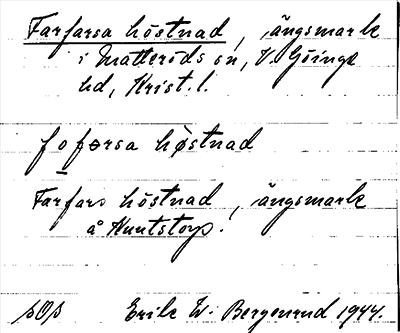 Farfarsa höstnad, ängsmark
i Matteröds sn, V. Göinge
hd, Krist. l.
foforsa höstnad
Farfars höstnad, ängsmark
å Nuntstorp.
pOp Erik W. Bergenrud 1944.